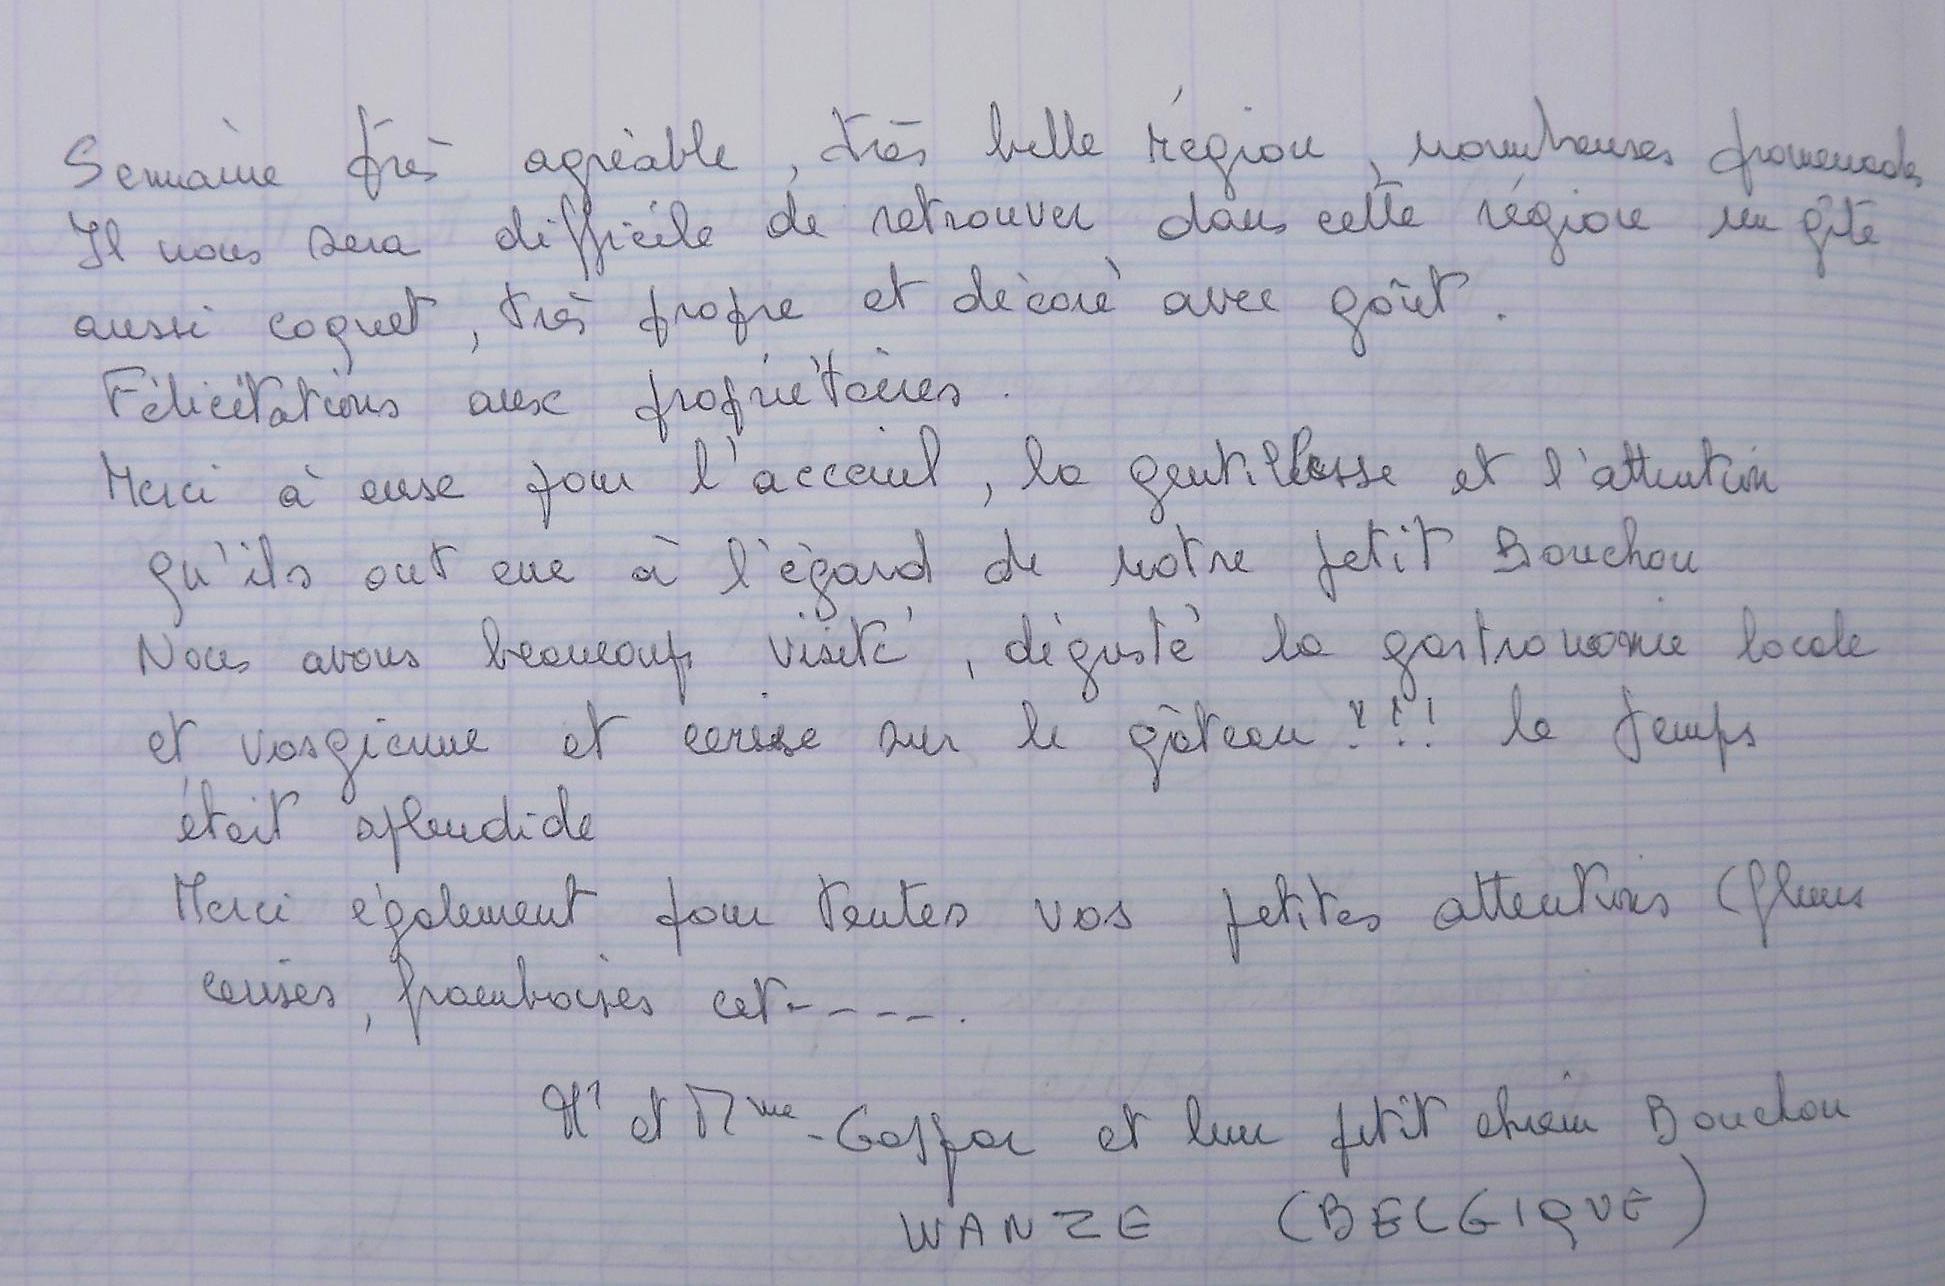 Semaine très agréable, très belle région, nombreuses promenades
Il nous sera difficile de retrouver dans cette région un gîte
aussi coquet, très propre et décoré avec goût.
Félicitations aux propriétaires.
Merci à eux pour l'accueil, la gentillesse et l'attention
qu'ils ont eue à l'égard de notre petit Bouchon
Nous avons beaucoup visité, dégusté la gastronomie locale
et vosgienne et cerise sur le gâteau !!!! le temps
était splendide
Merci également pour toutes vos petites attentions (fleurs
cerises, framboises cet-----.
Mr et Mme - Gaspar et leur petit chien Bouchon
WANZE (BELGIQUE)